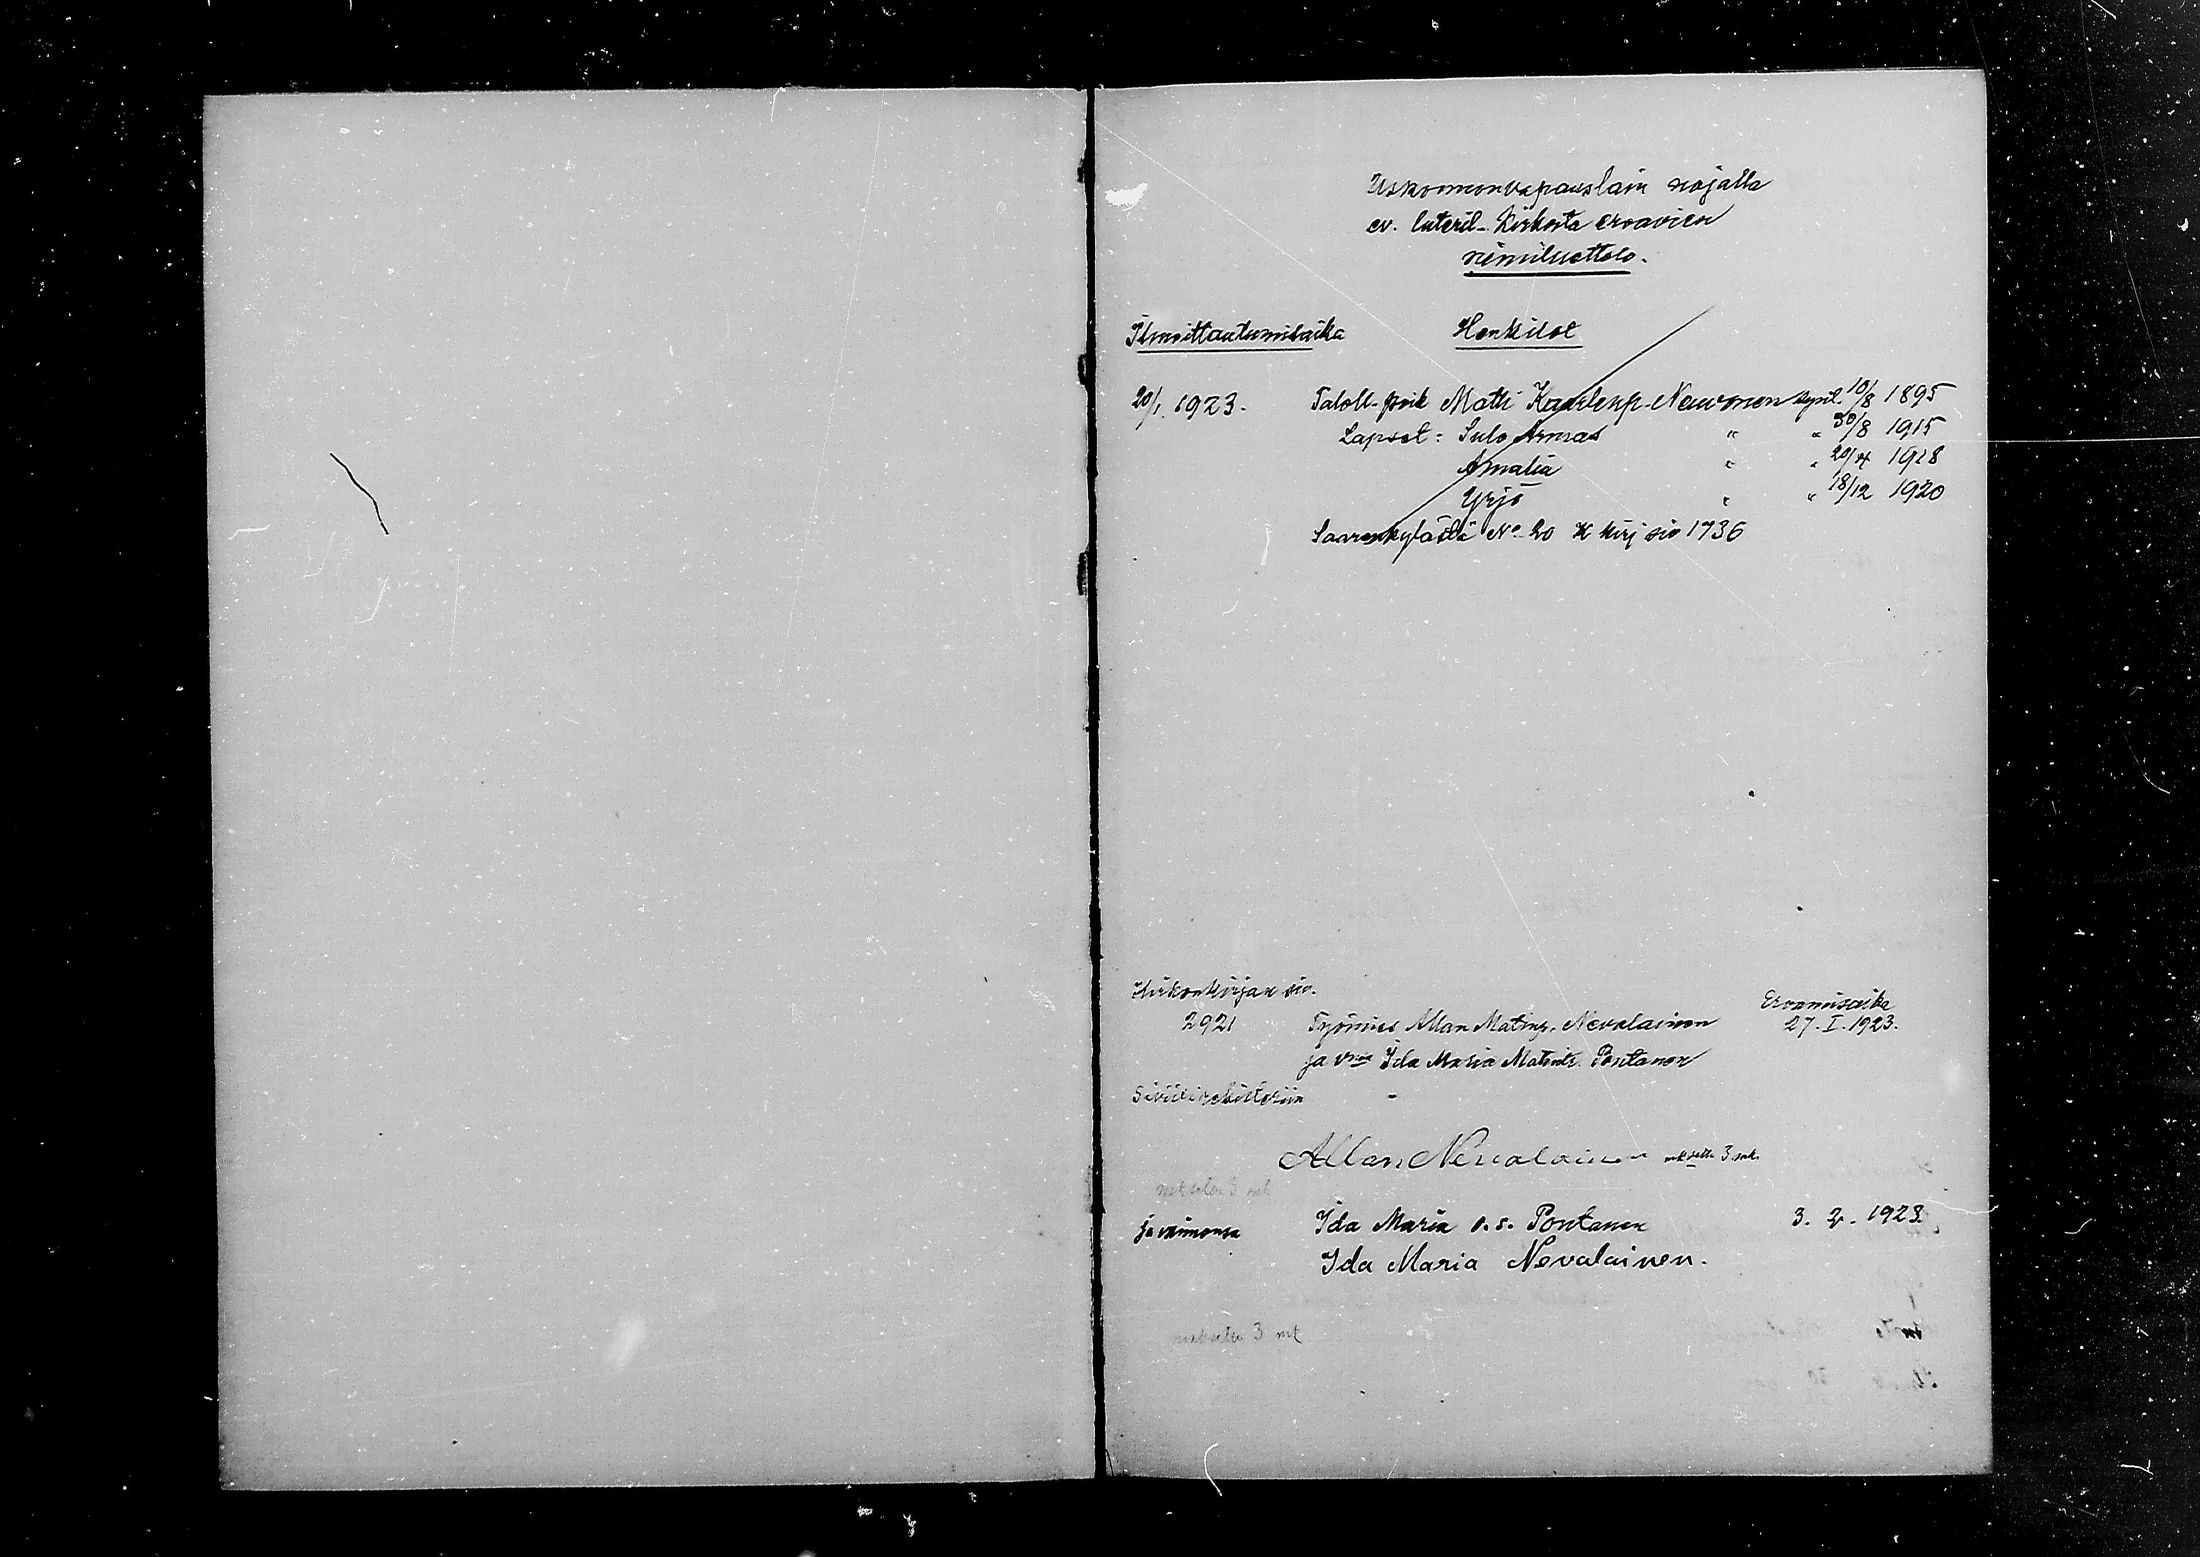 Uskonnonvapauslain nojalla
ev. luteril. kirkosta eroavien
nimiluettelo.
Ilmoittautumisaika Henkilöt
20/1. 1923. Taloll. poik Matti Kaarlenp. Neuvonen synt. 10/8 1895
Lapset: Sulo Armas " " 30/8 1915
Amalia " " 20/4 1918
Yrjö " " 18/12 1920
Saarenkylästä No 20 K kirj siv 1736
Kirkonkirjan siv. Eroamisaika
2921 Työmies Allan Matinp. Nevalainen 27. I. 1923.
ja vmo Ida Maria Matintr. Pontanen
Siviilirekisteriin
Allan Nevalainen 3 mk.
maksettu 3 mk
ja vaimonsa Ida Maria o.s. Pontanen 3. 2. 1923
Ida Maria Nevalainen.
maksettu 3 mk